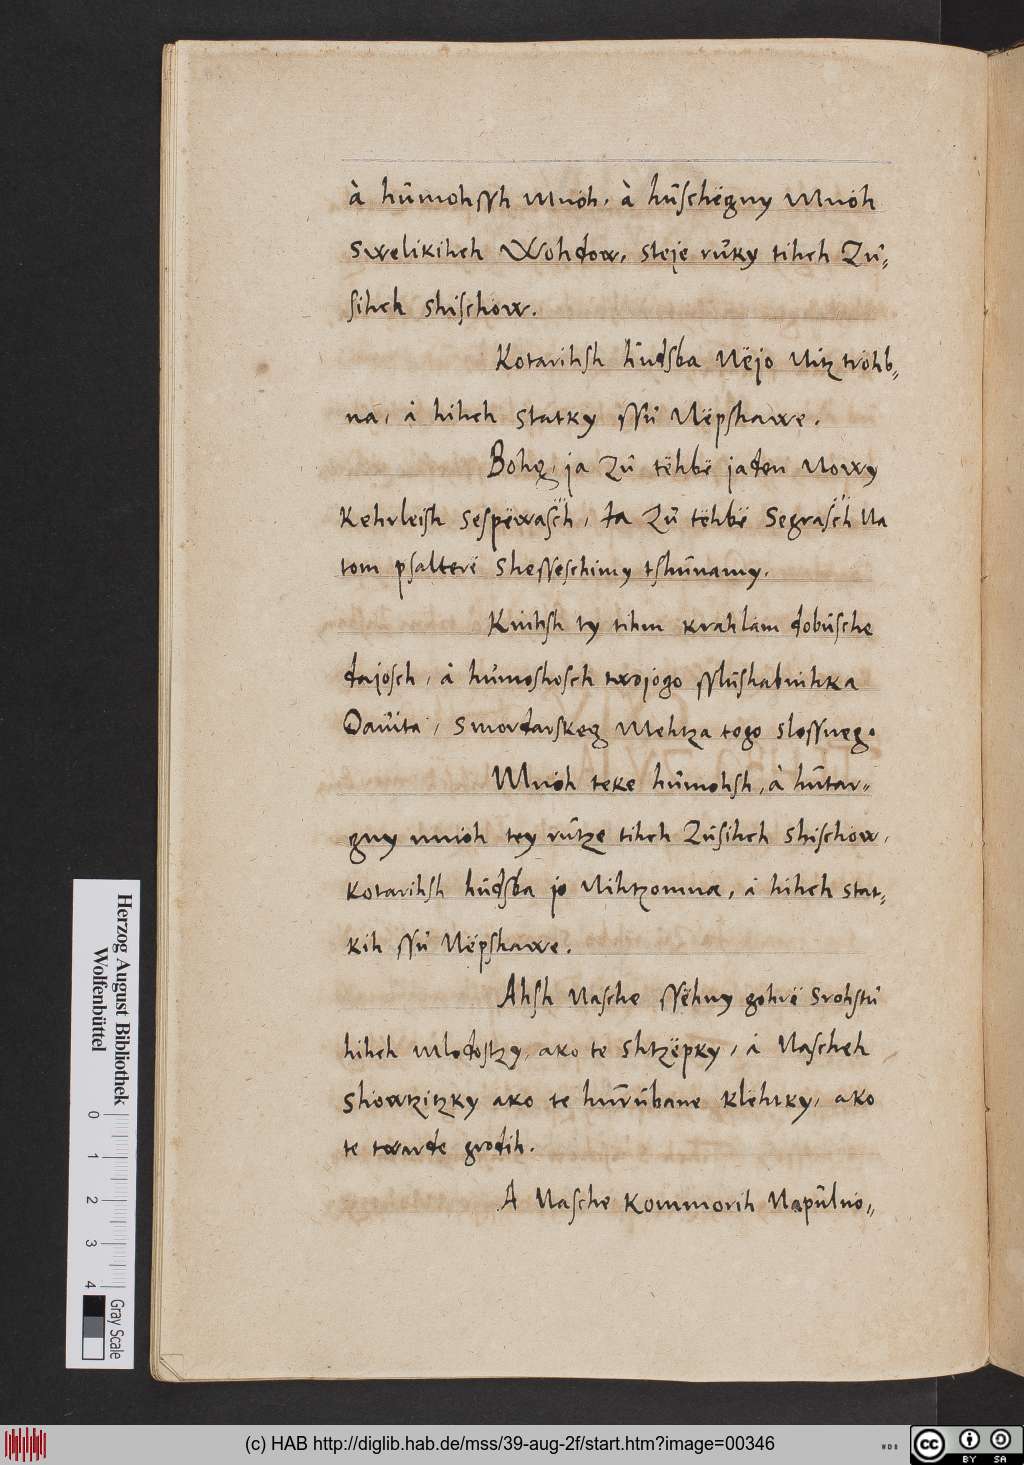 à hůmohssh Mnöh, à hůschëgny Mnöh
swelikihch Wohdow, steje růky tihch Zů=
sihch shischow.
Kotarihsh hůdsba Nëjo Nitz tröhb=
na, à hihch statky ssů Nëpshawe.
Bohg, ja Zů tëhbë jaden Nowy
Kehrleish sespëwasch, Ja Zů tëhbë Segrasch Na
tom psalterë shesseschimy tshůnamy.
Knihsh ty tihm krahlam dobůsche
dajosch, à hůmoshosch twojogo sslůshabnihka
Dauita, smordarskeg Mehtza togo slossneg.
Mnöh teke hůmohsh, à hůtar=
gny mnöh tey růtze tihch Zůsihch shischow,
kotarihsh hůdsba jo Nihtzomna, à hihch stat=
kih ssů Nëpshawe.
Ahsh Nasche ssëhny gohrë Srohstů
hihch mlodostzy, ako te shtzëpky, à Naschch
showtzitzky ako te hůrůbane klëhtky, ako
te twarde grodih.
A Nasche Kommorih Napůlno=
Herzog August Bibliothek
Wolfenbüttel
0 1 2 3 4
Gray Scale
(c) HAB http://diglib.hab.de/mss/39-aug-2f/start.htm?image=00346
WDB
CC BY SA